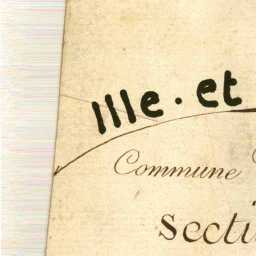 Ille . et
Commune
Secti